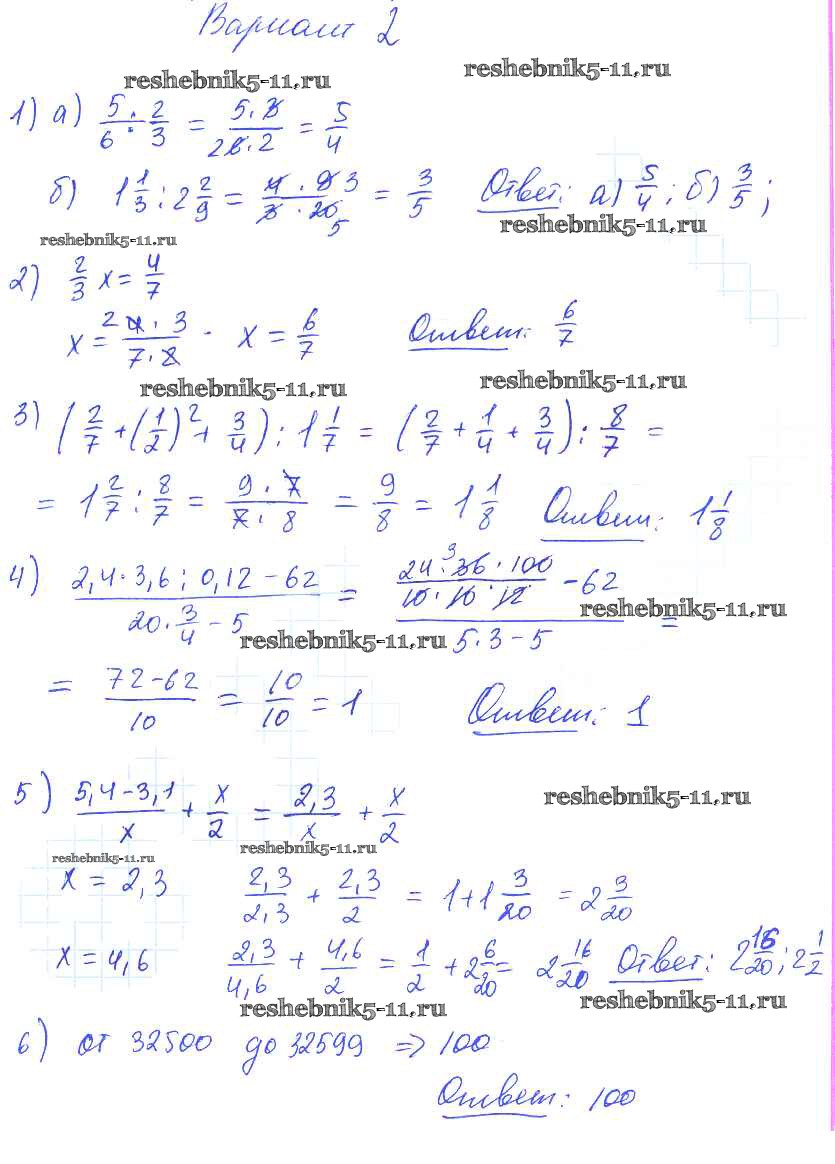 Вариант 2
reshebnik5-11.ru reshebnik5-11.ru
1) а) 5/6 : 2/3 = 5·3/2 6·2 = 5/4
б) 1 1/3 : 2 2/9 = 4·9 3/3·20 5 = 3/5 Ответ: а) 5/4; б) 3/5;
reshebnik5-11.ru reshebnik5-11.ru
2) 2/3 x = 4/7
x = 2 4·3/7·2 · x = 6/7 Ответ: 6/7
reshebnik5-11.ru reshebnik5-11.ru
3) (2/7 + (1/2)² + 3/4) : 1 1/7 = (2/7 + 1/4 + 3/4) : 8/7 =
= 1 2/7 : 8/7 = 9·7/7·8 = 9/8 = 1 1/8 Ответ: 1 1/8
4) (2,4·3,6 : 0,12 - 62)/(20·3/4 - 5) = (24·36 3·100/10·10·12 - 62)/(5·3 - 5) =
reshebnik5-11.ru reshebnik5-11.ru
= 72-62/10 = 10/10 = 1 Ответ: 1
5) 5,4-3,1/x + x/2 = 2,3/x + x/2 reshebnik5-11.ru
reshebnik5-11.ru reshebnik5-11.ru
x = 2,3 2,3/2,3 + 2,3/2 = 1+1 3/20 = 2 3/20
x = 4,6 2,3/4,6 + 4,6/2 = 1/2 + 2 6/20 = 2 16/20 Ответ: 2 16/20; 2 1/2
reshebnik5-11.ru reshebnik5-11.ru
6) от 32500 до 32599 => 100
Ответ: 100